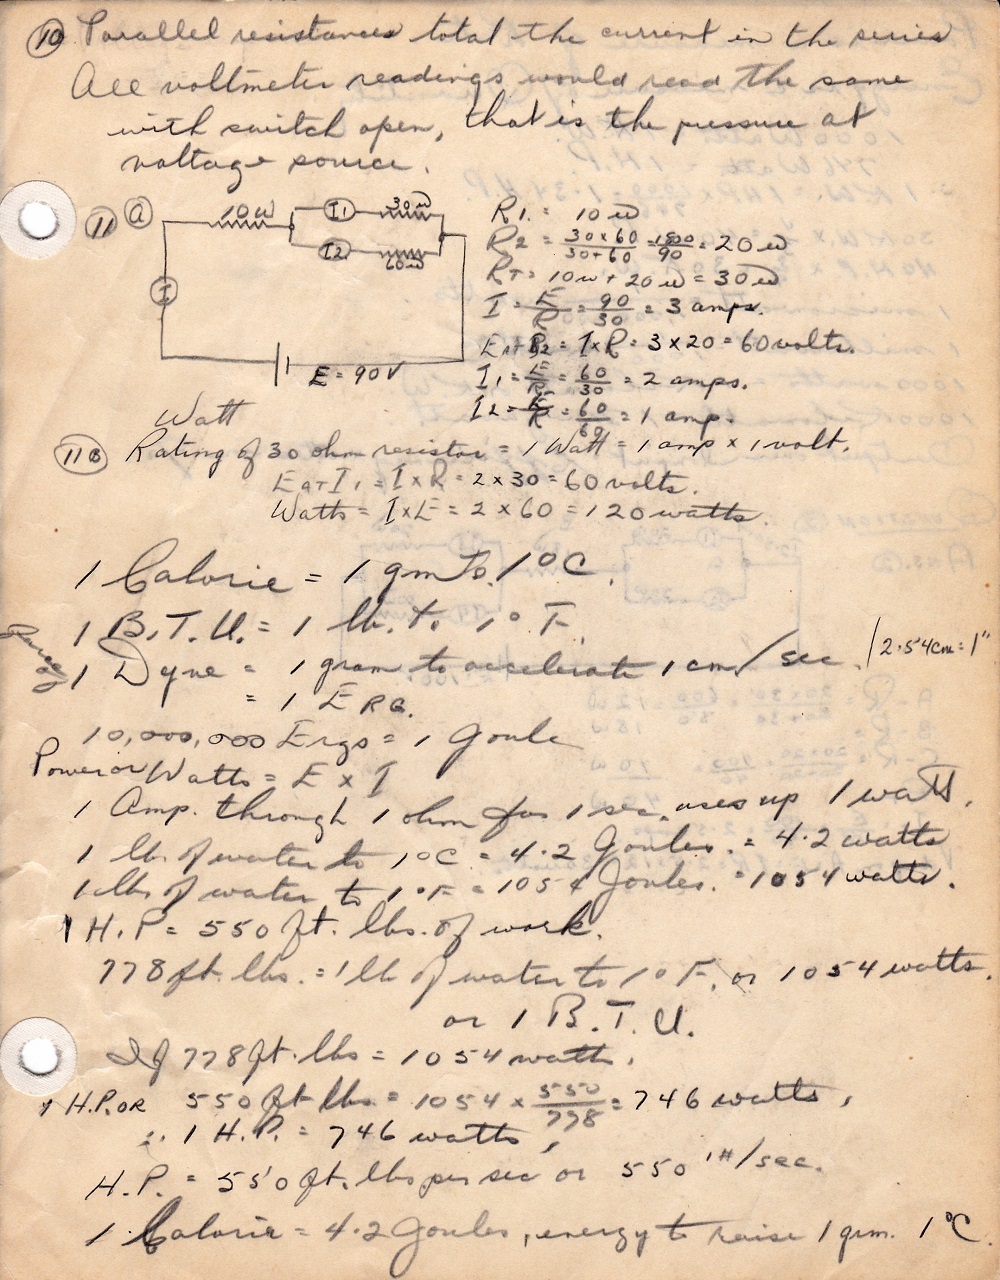 10 Parallel resistances total the current in the series
All voltmeter readings would read the same
with switch open, that is the pressure at
voltage source.
11 a
10 ω
I1
30 ω
I2
60 ω
I
E = 90V
R1. = 10 ω
R2 = 30x60/30+60 = 1800/90 = 20 ω
RT = 10 ω + 20 ω = 30 ω
I = E/R = 90/30 = 3 amps.
E AT R2 = I x R = 3 x 20 = 60 volts.
I1 = E/R = 60/30 = 2 amps.
I2 = E/R = 60/60 = 1 amp.
Watt
11B Rating of 30 ohm resistor = 1 Watt = 1 amp x 1 volt.
E AT I1 = I x R = 2 x 30 = 60 volts.
Watts = I x E = 2 x 60 = 120 watts.
1 Calorie = 1 gm to 1°C.
1 B.T.U. = 1 lb. to 1° F.
1 Dyne = 1 gram to accelerate 1 cm/sec. / 2.54cm = 1"
= 1 ERG.
10,000,000 Ergs = 1 Joule
Power or Watts = E x I
1 Amp. through 1 ohm for 1 sec. uses up 1 watt.
1 lb of water to 1°C = 4.2 Joules. = 4.2 watts
1 lb of water to 1°F = 1054 Joules. = 1054 watts.
1 H.P = 550 ft. lbs. of work.
778 ft. lbs. = 1 lb of water to 1° F. or 1054 watts.
or 1 B.T.U.
If 778 ft. lbs = 1054 watts.
1 H.P. OR 550 ft lbs. = 1054 x 550/778 = 746 watts,
∴ 1 H.P. = 746 watts,
H.P. = 550 ft. lbs per sec or 550 '#/sec.
1 Calorie = 4.2 Joules, energy to raise 1 grm. 1°C.